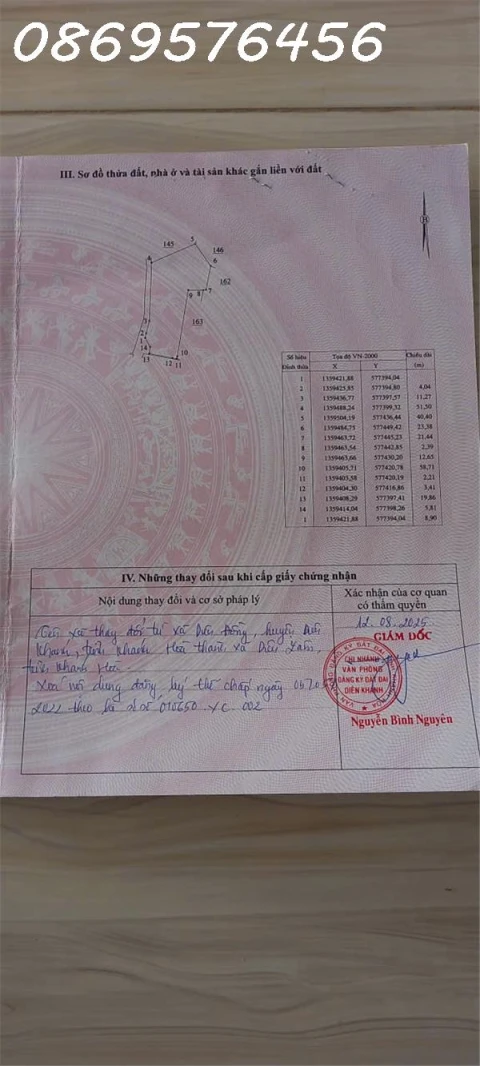 0869576456
III. Sơ đồ thửa đất, nhà ở và tài sản khác gắn liền với đất
B
145
5
146
4
6
162
9 8 7
163
3
2
1
14
13
12 11
10
Số hiệu Đỉnh thửa Tọa độ VN-2000 Chiều dài (m)
X Y
1 1359421,88 577394,04
2 1359425,85 577394,80 4,04
3 1359436,77 577397,57 11,27
4 1359488,24 577399,32 51,50
5 1359504,19 577436,44 40,40
6 1359484,75 577449,42 23,38
7 1359463,72 577445,23 21,44
8 1359463,54 577442,85 2,39
9 1359463,66 577430,20 12,65
10 1359405,71 577420,78 58,71
11 1359405,58 577420,19 2,21
12 1359404,30 577416,86 3,41
13 1359408,29 577397,41 19,86
14 1359414,04 577398,26 5,81
1 1359421,88 577394,04 8,90
IV. Những thay đổi sau khi cấp giấy chứng nhận
Nội dung thay đổi và cơ sở pháp lý
Xác nhận của cơ quan
có thẩm quyền
xã thay đổi từ xã Diên Đồng, huyện Diên
Khánh, tỉnh Khánh Hòa thành xã Diên
tỉnh Khánh Hòa
Xóa nội dung đăng ký thế chấp ngày
2022 theo hồ sơ số 010650.XC.002
12.08.2025
GIÁM ĐỐC
CHI NHÁNH
VĂN PHÒNG
ĐĂNG KÝ ĐẤT ĐAI
DIÊN KHÁNH
Nguyễn Bình Nguyên